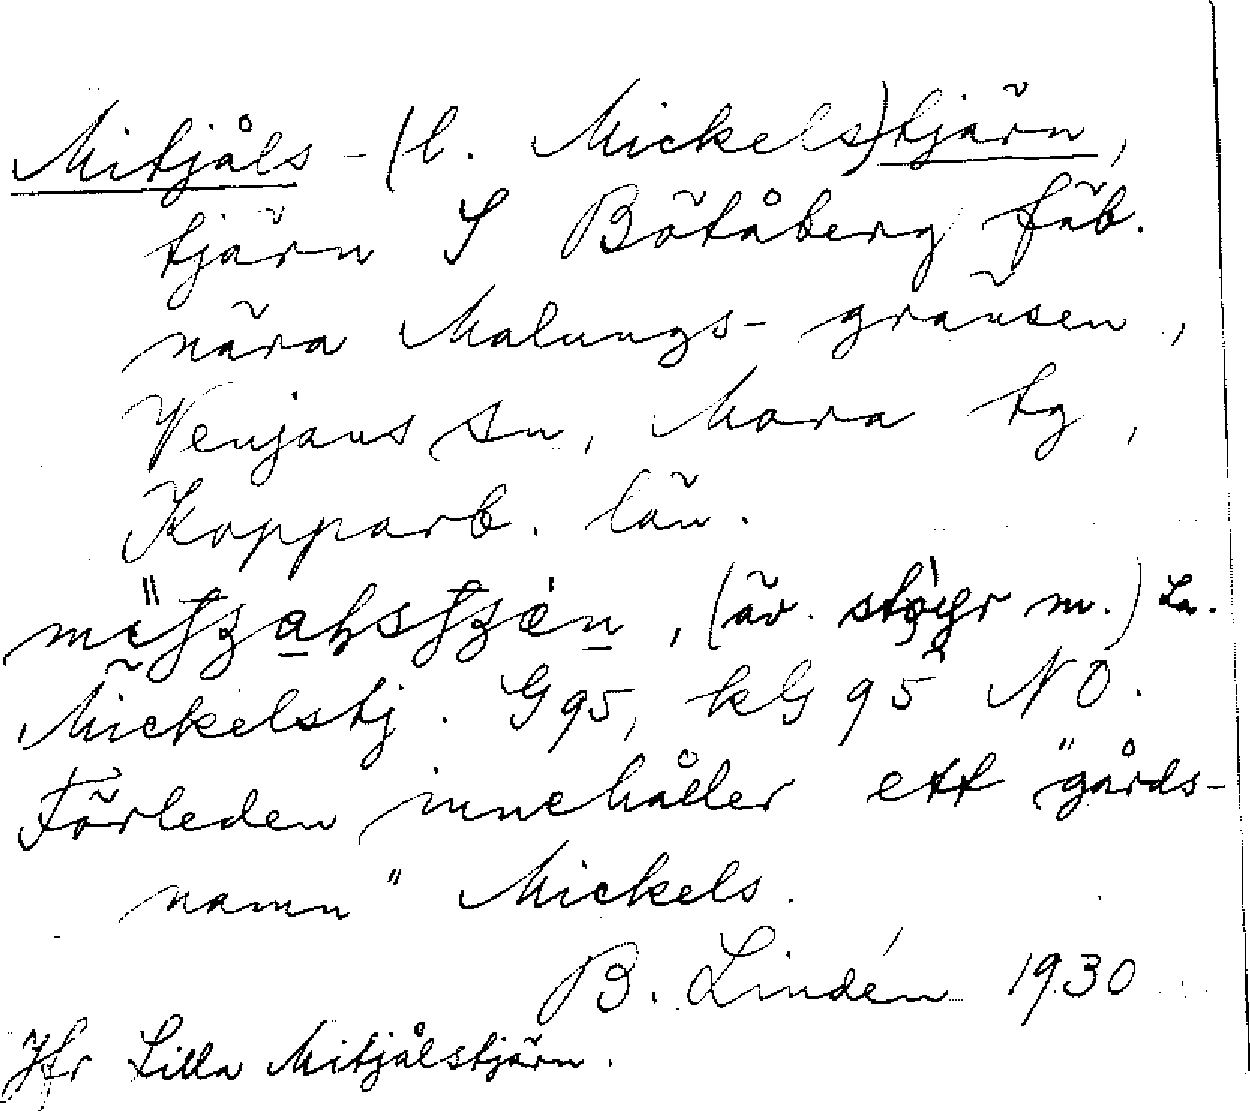 Mitjåls - (l. Mickels) tjärn,
tjärn S Bötåberg fäb.
nära Malungs- gränsen,
Venjans sn, Mora tg,
Kopparb. län.
(äv. m.) La.
Mickelstj. G 95, kG 95 NO.
Förleden innehåller ett "gårds-
namn" Mickels.
B. Lindén 1930
Jfr Lilla Mitjålstjärn.